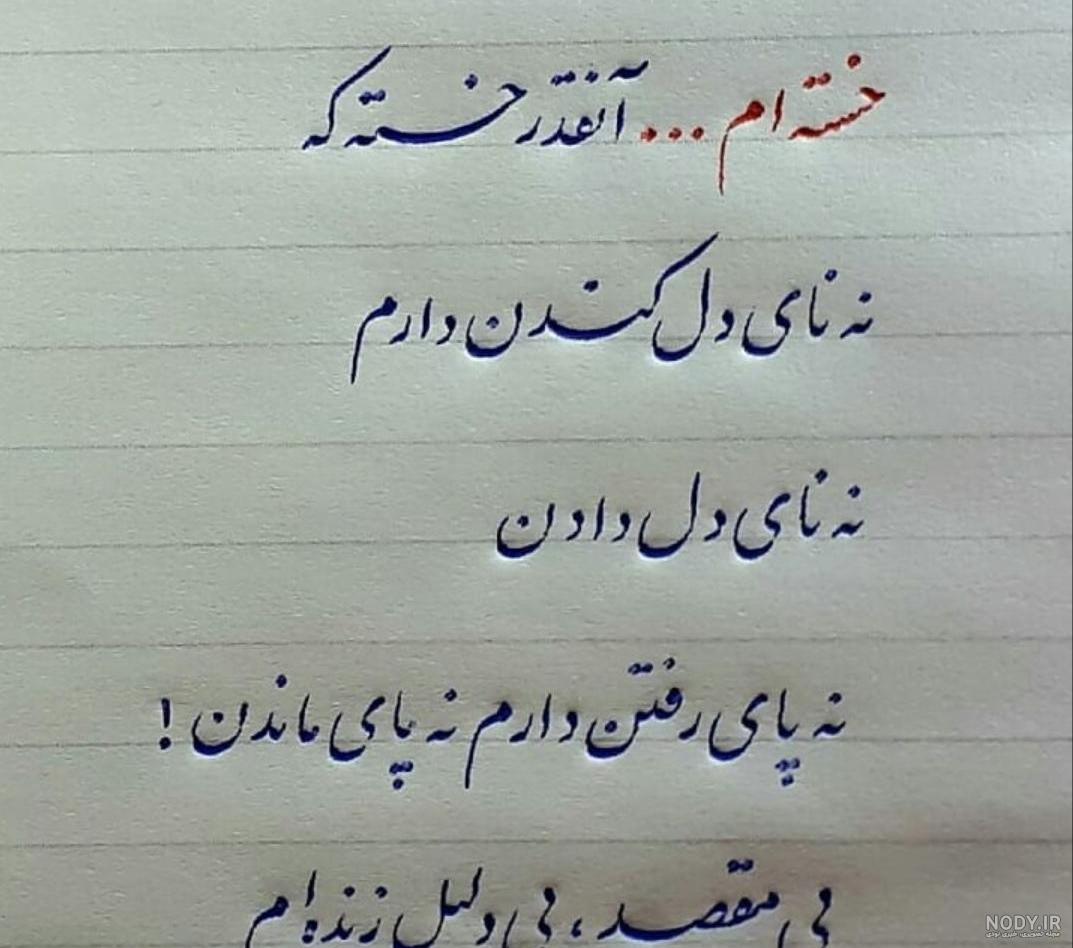 خسته ام ... آنقدر خسته که
نه نای دل کندن دارم
نه نای دل دادن
نه پای رفتن دارم نه پای ماندن !
بی مقصد ، بی دلیل زنده ام
NODY.IR